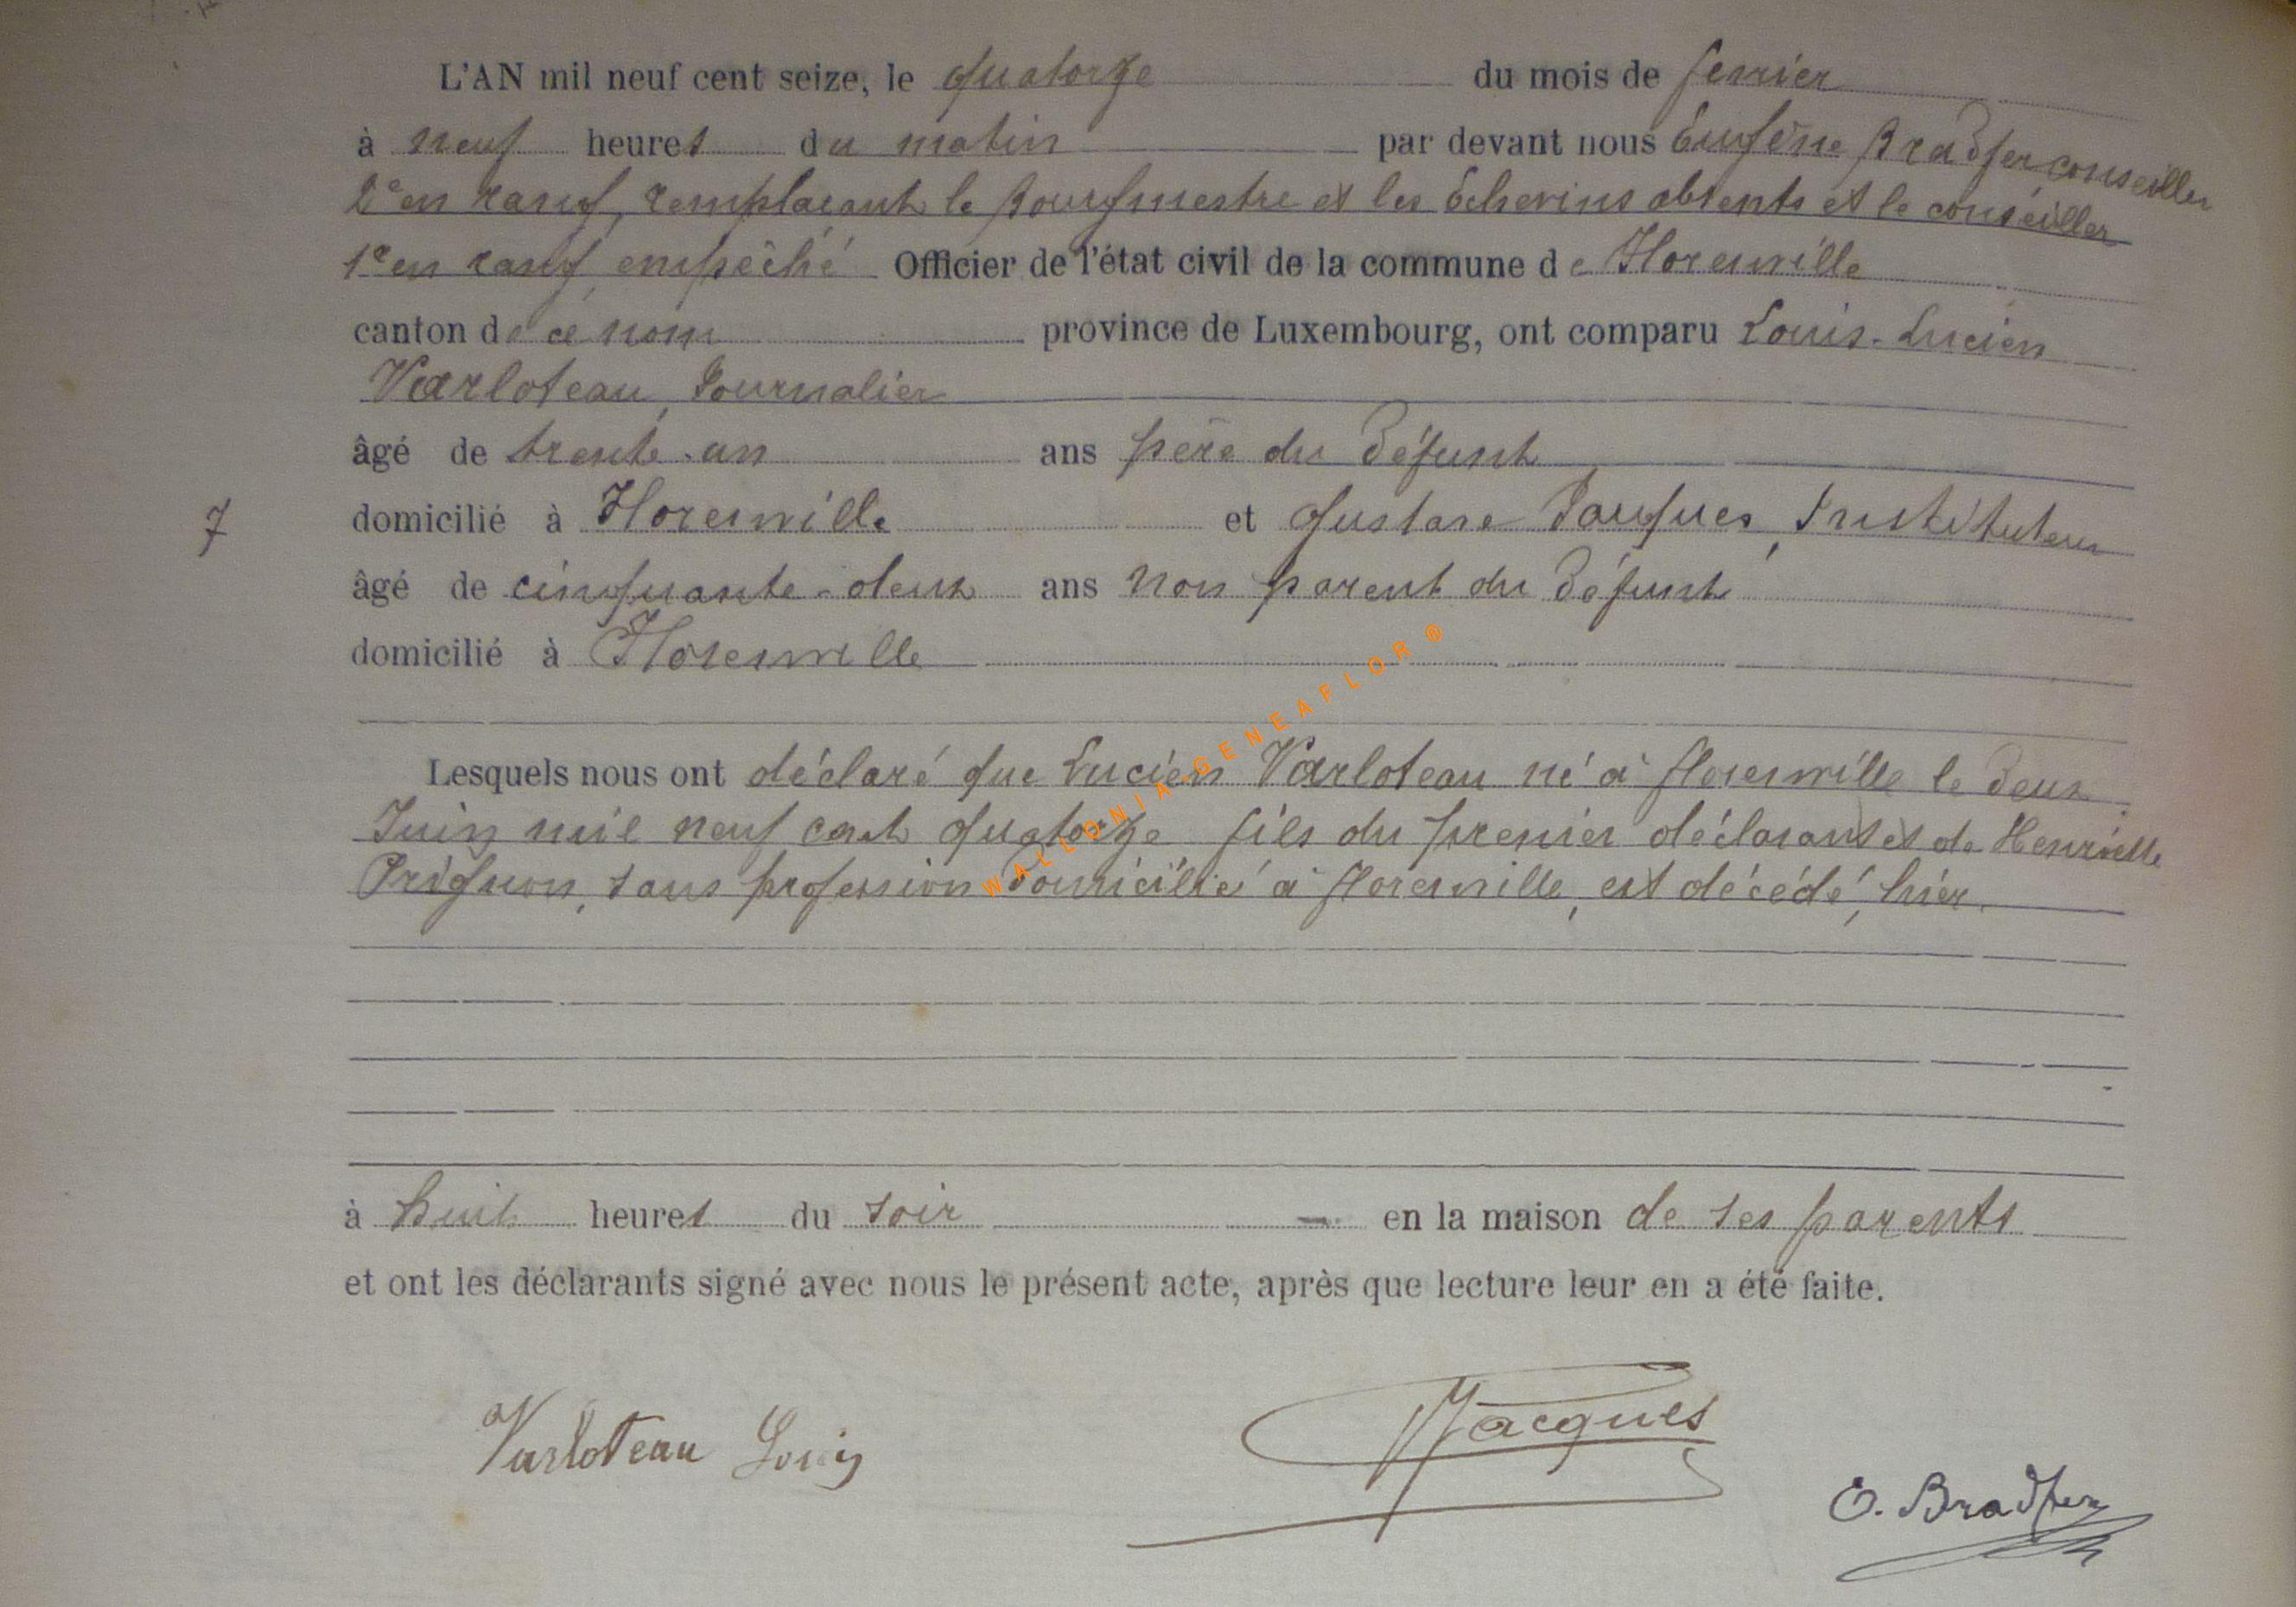 L'AN mil neuf cent seize, le quatorze du mois de fevrier
à neuf heures du matin par devant nous Eugène Bradfer conseiller
2e en rang, remplaçant le Bourgmestre et les Echevins absents et le conseiller
1e en rang empêché Officier de l'état civil de la commune de Florenville
canton de ce nom province de Luxembourg, ont comparu Louis-Lucien
Varloteau, Journalier
âgé de trente-un ans père du défunt
domicilié à Florenville et Gustave Jacques, Instituteur
7
âgé de cinquante-deux ans non parent du défunt
domicilié à Florenville
Lesquels nous ont déclaré que Lucien Varloteau né à Florenville le deux
Juin mil neuf cent quatorze fils du premier déclarant et de Henriette
Prignon, sans profession domiciliée à Florenville, est décédé, hier.
à huit heures du soir en la maison de ses parents
et ont les déclarants signé avec nous le présent acte, après que lecture leur en a été faite.
Varloteau Louis
Jacques
E. Bradfer
WALLONIA-GENEAFLOR ®